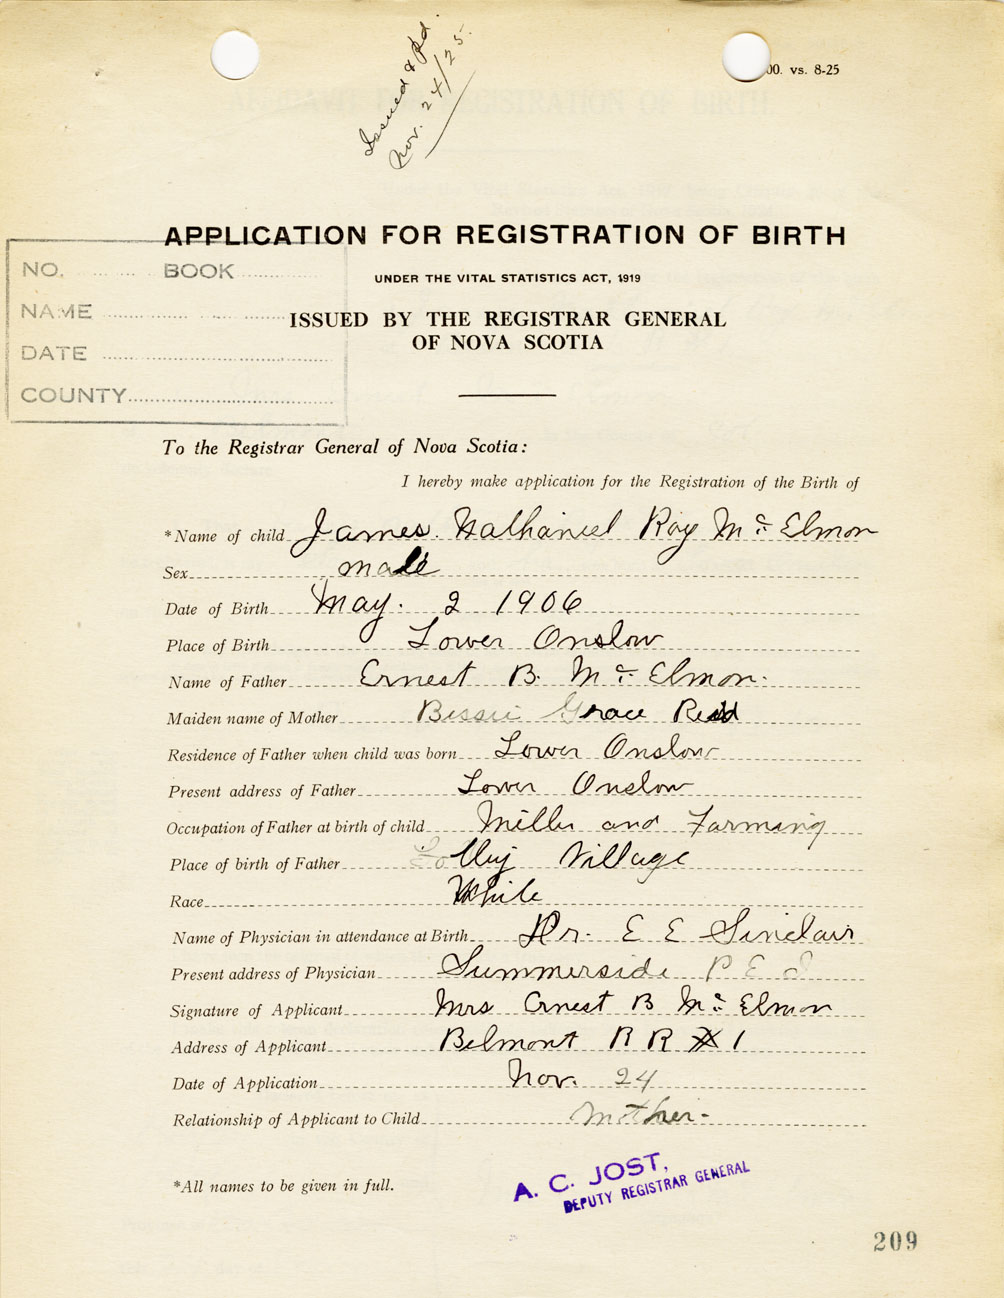 Issued & Pd.
Nov. 24/25.
00. vs. 8-25
APPLICATION FOR REGISTRATION OF BIRTH
NO. BOOK
UNDER THE VITAL STATISTICS ACT, 1919
NAME
ISSUED BY THE REGISTRAR GENERAL
OF NOVA SCOTIA
DATE
COUNTY
To the Registrar General of Nova Scotia:
I hereby make application for the Registration of the Birth of
*Name of child James. Nathaniel Roy Mc Elmon
Sex male
Date of Birth May. 2 1906
Place of Birth Lower Onslow
Name of Father Ernest B. Mc Elmon.
Maiden name of Mother Bessie Grace Reid
Residence of Father when child was born Lower Onslow
Present address of Father Lower Onslow
Occupation of Father at birth of child Miller and Farming
Place of birth of Father Folly Village
Race White
Name of Physician in attendance at Birth Dr. E E Sinclair
Present address of Physician Summerside P E I
Signature of Applicant Mrs Ernest B Mc Elmon
Address of Applicant Belmont R R # 1
Date of Application Nov. 24
Relationship of Applicant to Child Mother-
*All names to be given in full.
A. C. JOST,
DEPUTY REGISTRAR GENERAL
209